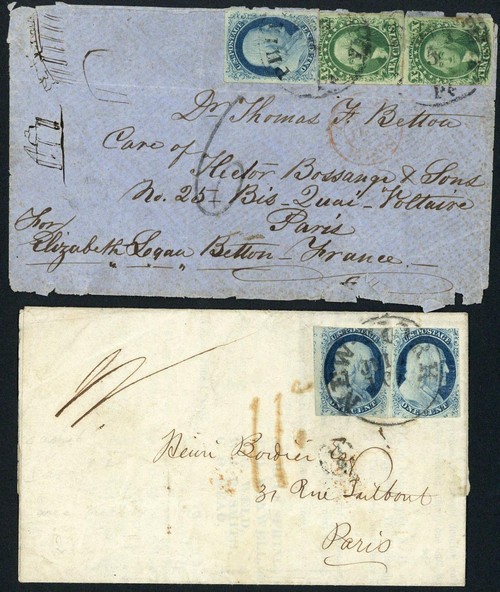 U.S. POSTAGE
PHI
Dr Thomas F. Betton
Care of Hector Bossange & Sons
No. 25 - Bis - Quai - Voltaire
Paris
For
Elizabeth Logan Betton - France.
U.S. POSTAGE U.S. POSTAGE
ONE CENT ONE CENT
NEW YORK
Henri Bordier
31 Rue Taitbout
Paris